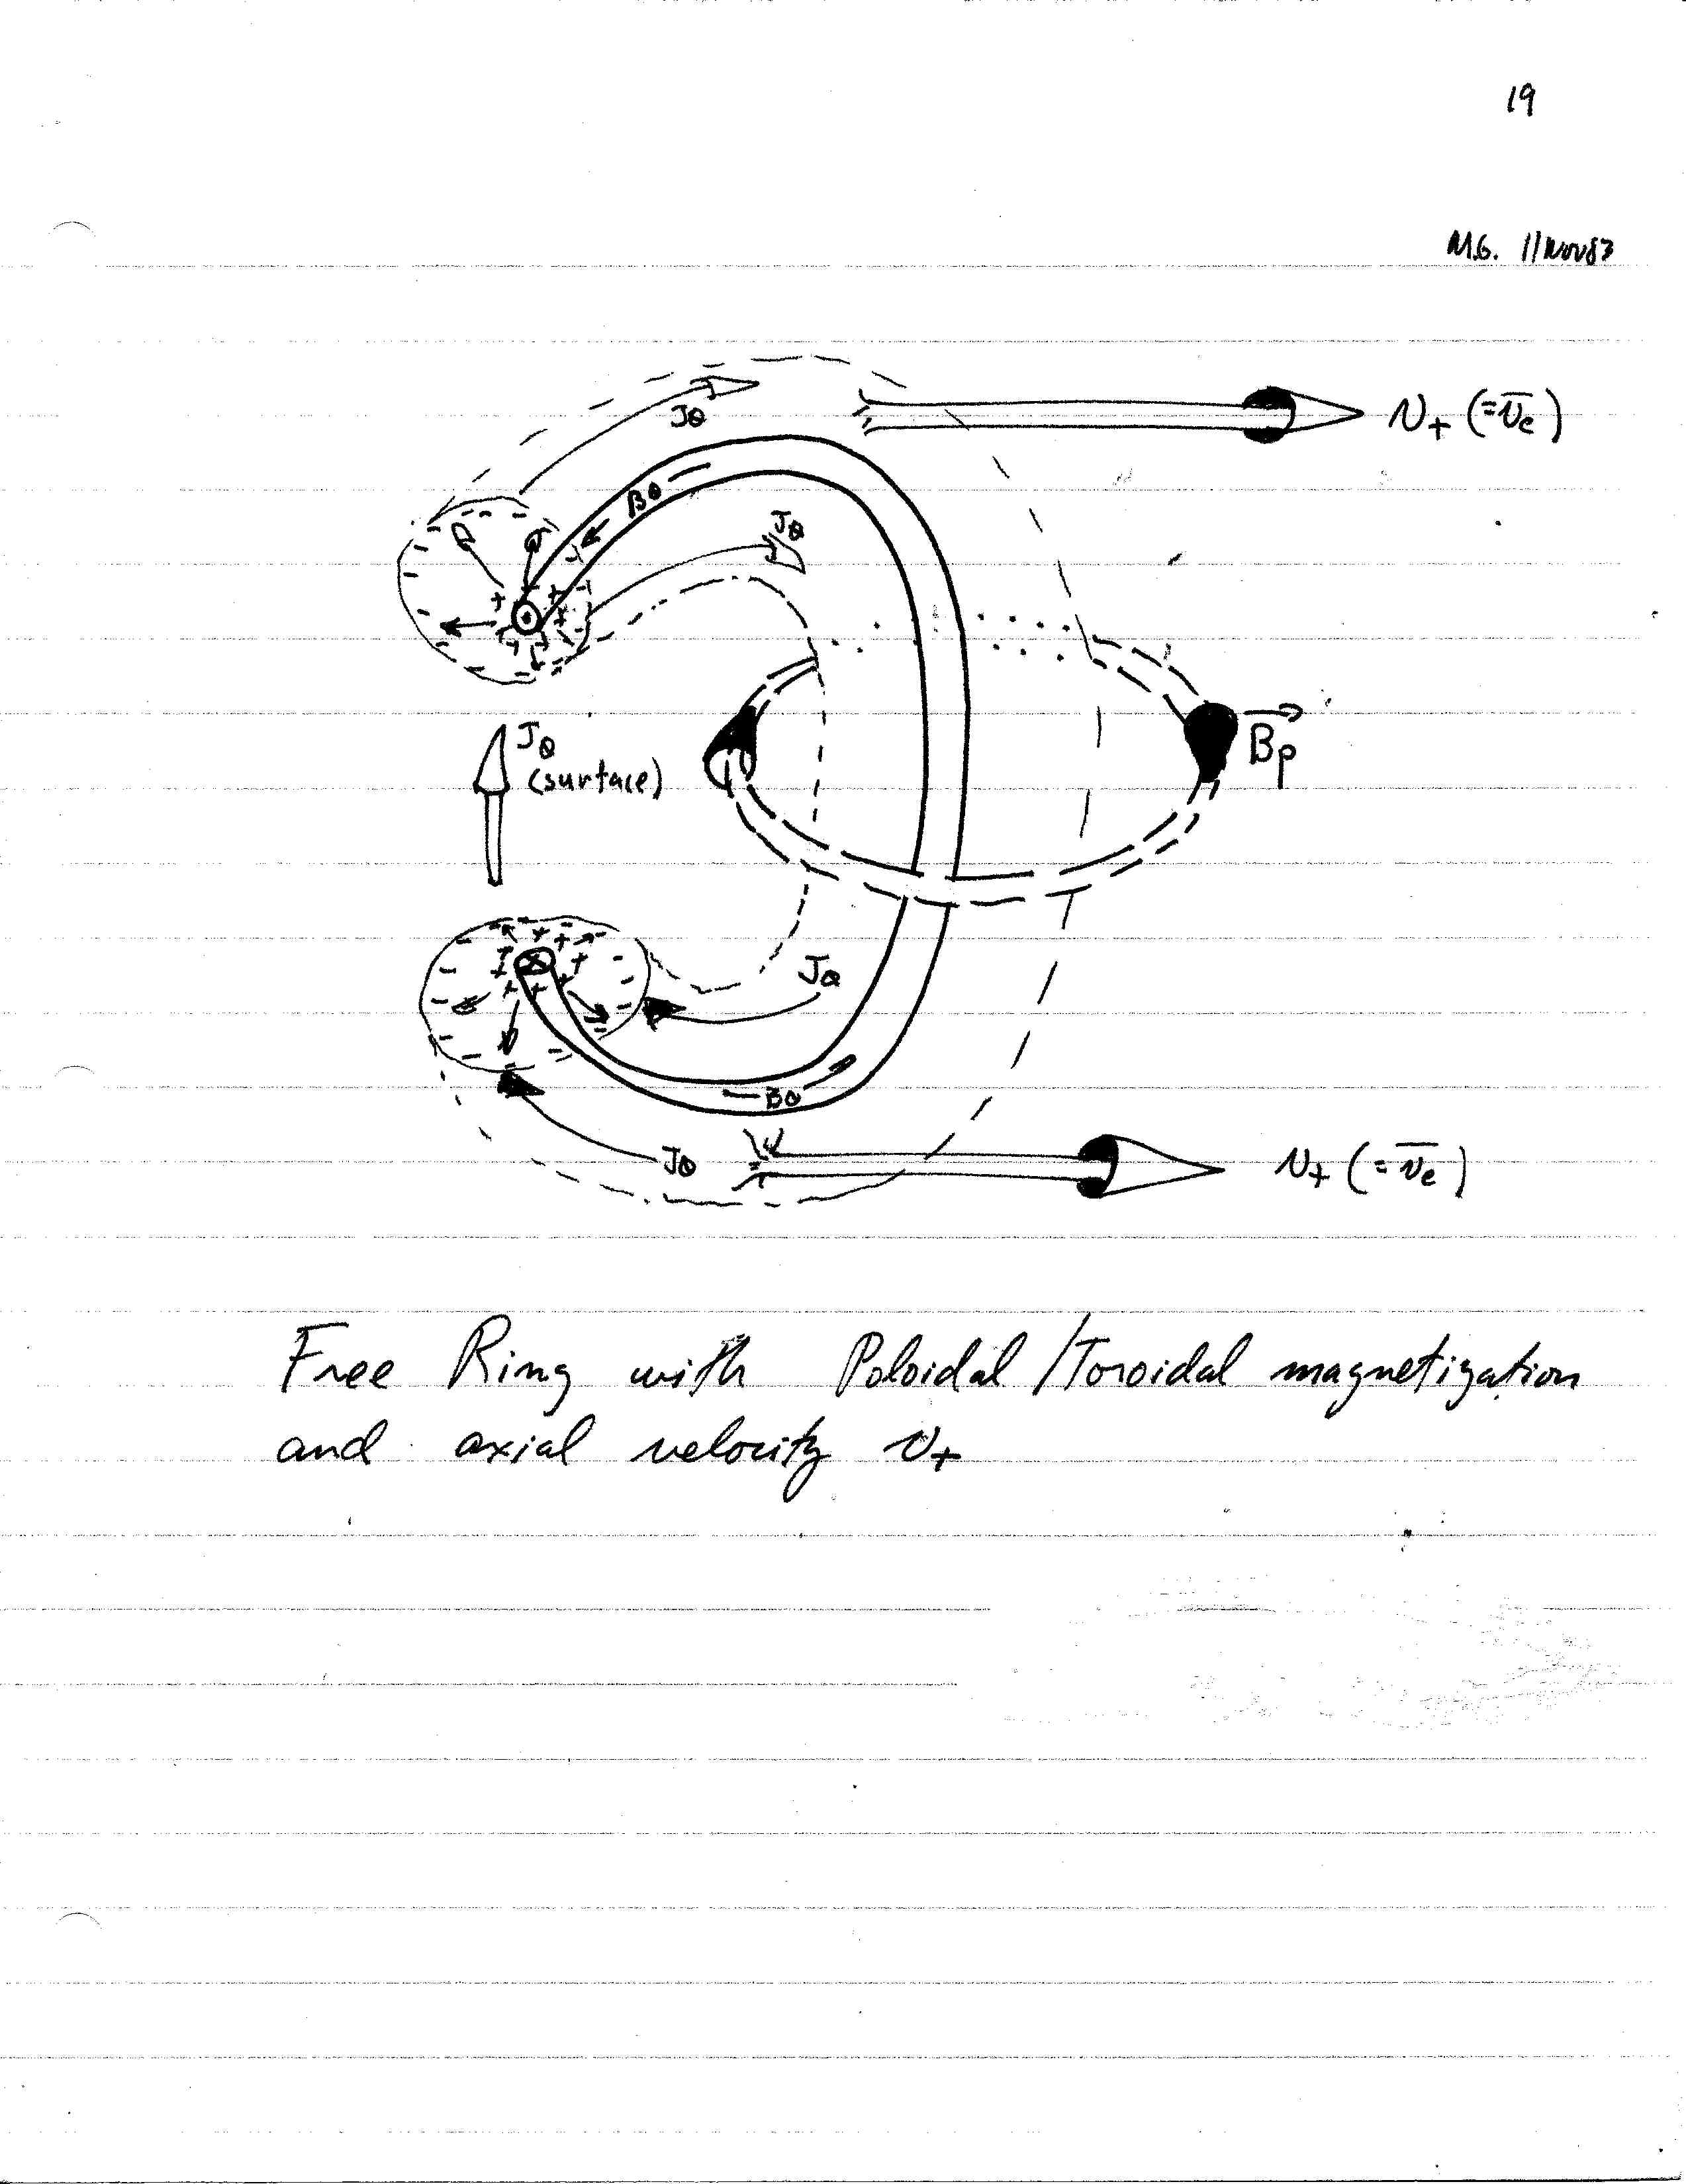 19
M.G. 11Nov83
Jθ
v+ (=v̅e)
Bθ
Jθ
Jθ
(surface)
Bp
Jθ
Bθ
Jθ
v+ (=v̅e)
Free Ring with Poloidal/Toroidal magnetization
and axial velocity v+